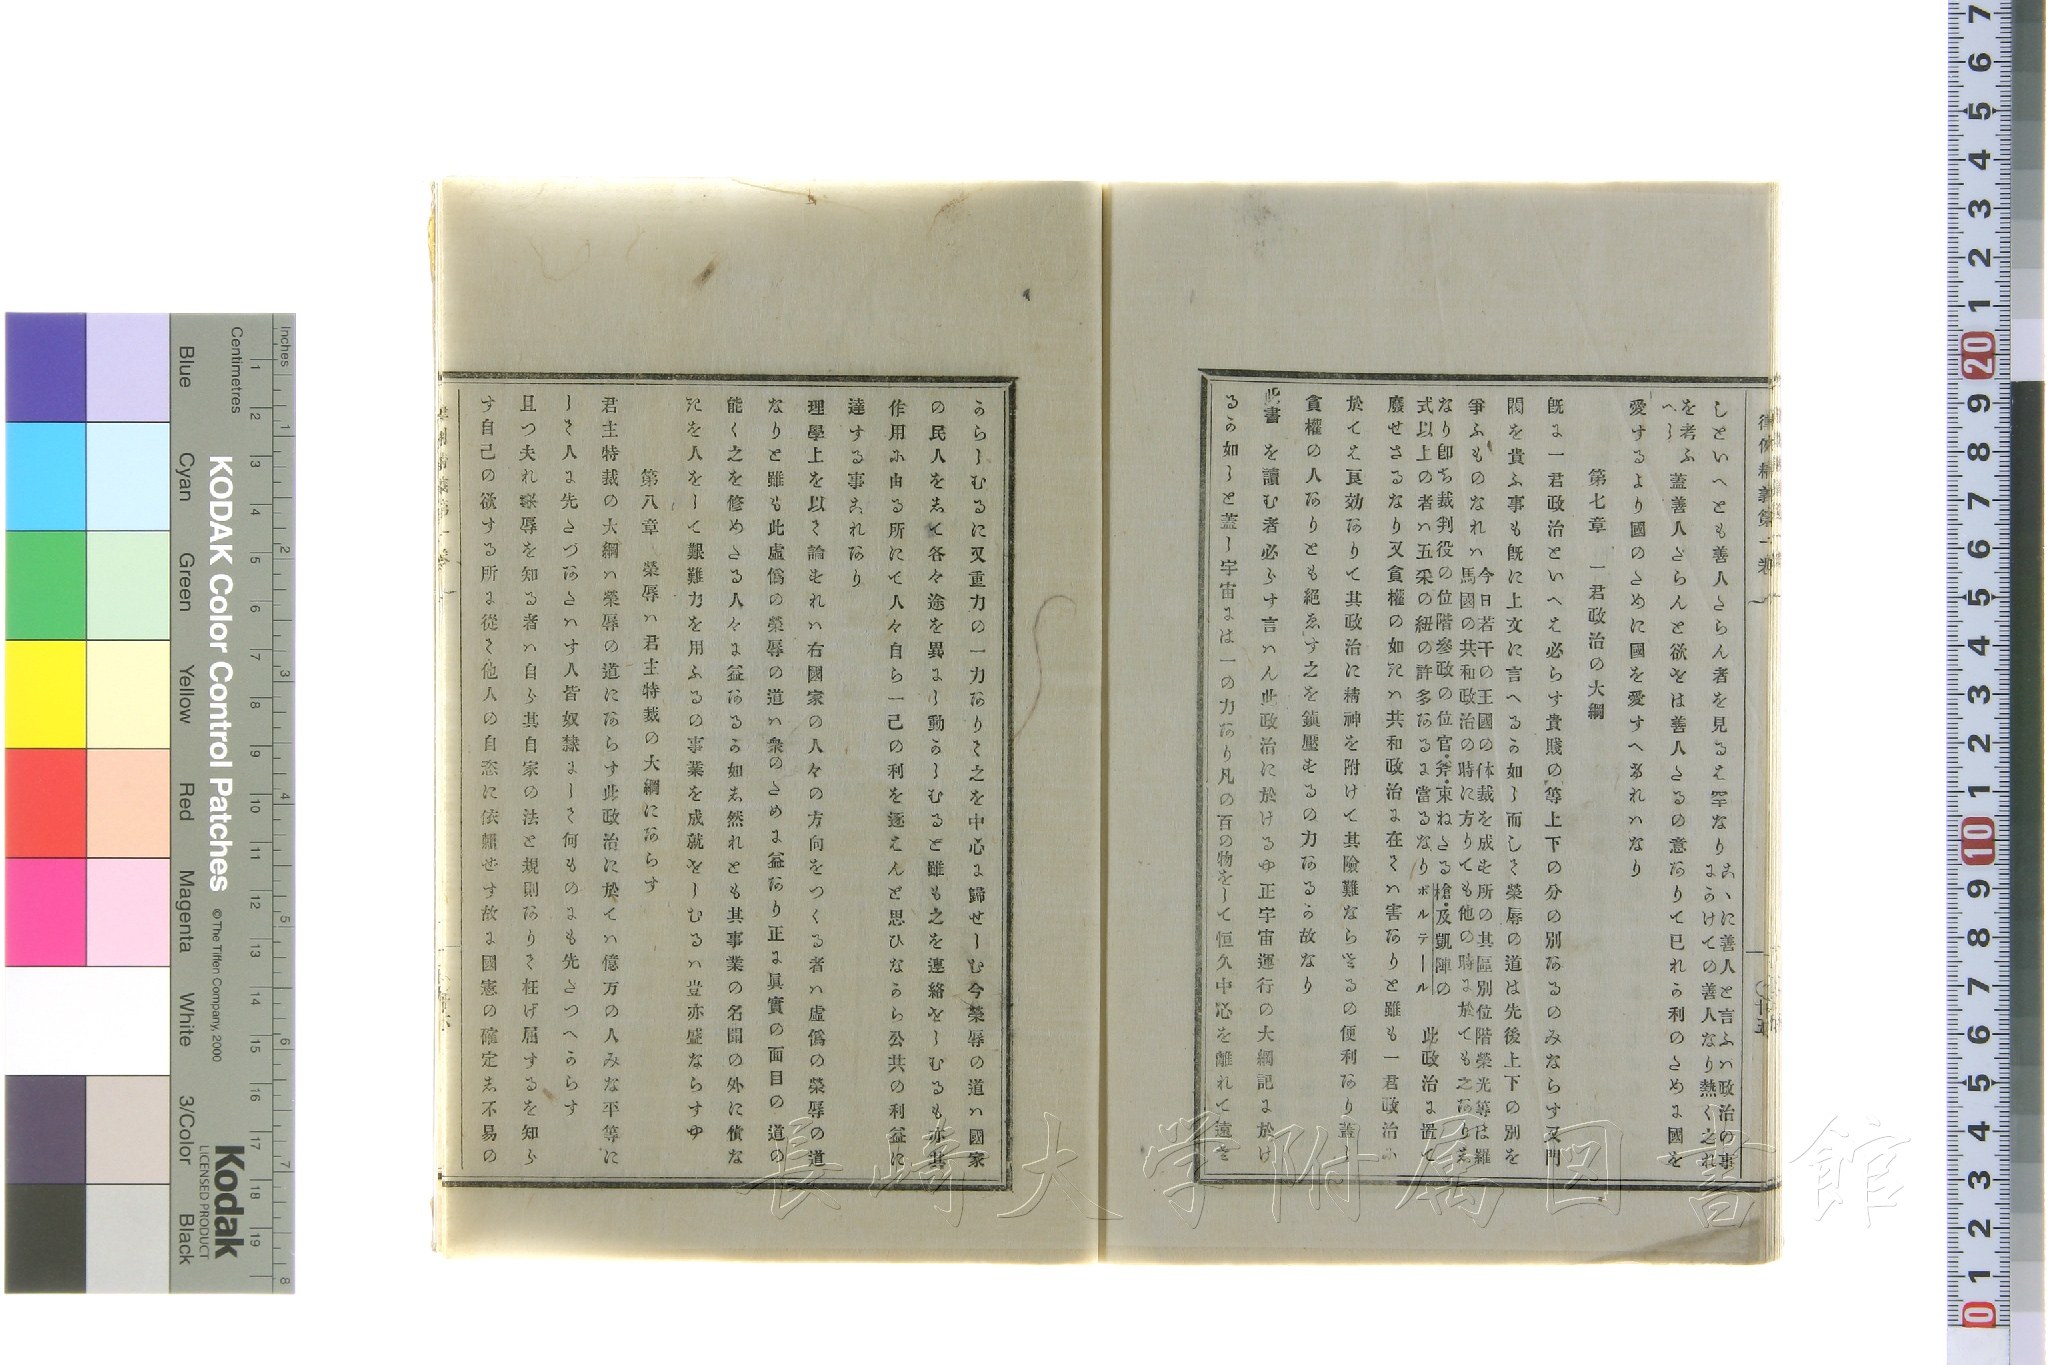 しといへとも善人さらん者を見るは罕なり
爰に善人と言ふハ政治の事
にかけての善人なり熱く之れ
を考ふ
へし
蓋善人さらんと欲せは善人さるの意ありて已れか利のさめに國を
愛するより國のさめに國を愛すへけれハなり
第七章 一君政治の大綱
既に一君政治といへは必らす貴賤の等上下の分の別あるのみならす又門
閥を貴ふ事も既に上文に言へるか如し而して榮辱の道は先後上下の別を
爭ふものなれハ
今日若干の王國の体裁を成せ所の其區別位階榮光等は羅
馬國の共和政治の時に方りても他の時に於ても之あり
なり卽ち裁判役の位階參政の位官斧束ねさる槍及凱陣の
式以上の者ハ五采の紐の許多あるに當るなりボルテール
此政治に置て
廢せさるなり又貪權の如きハ共和政治に在てハ害ありと雖も一君政治ハ
於ては良効ありて其政治に精神を附けて其險難ならさるの便利あり蓋し
貪權の人ありとも絕ゑす之を鎭壓せるの力あるか故なり
此書を讀む者必らす言ハん此政治に於けるや正宇宙運行の大綱記に於け
るか如しと蓋し宇宙には一の力あり凡の百の物をして恒久中心を離れて遠さ
からしむるに又重力の一力ありて之を中心に歸せしむ今榮辱の道ハ國家
の民人をして各々途を異にし動かしむると雖も之を連絡せしむるも亦其
作用に由る所にて人々自ら一己の利を逐はんと思ひなから公共の利益に
達する事あれあり
理學上を以て論すれハ右國家の人々の方向をつくる者ハ虛僞の榮辱の道
なりと雖も此虛僞の榮辱の道ハ衆のさめに益あり正に眞實の面目の道の
能く之を修めさる人々に益あるか如し然れとも其事業の名聞の外に償な
きを人をして艱難力を用ふるの事業を成就せしむるハ豈亦盛ならすや
第八章 榮辱ハ君主特裁の大綱にあらす
君主特裁の大綱ハ榮辱の道にあらす此政治に於てハ億万の人みな平等に
して人に先さつあさハす人皆奴隸にして何ものにも先さつへからす
且つ夫れ榮辱を知る者ハ自ら其自家の法と規則ありて枉け屈するを知ら
す自己の欲する所に從て他人の自恣に依賴せす故に國憲の確定し不易の